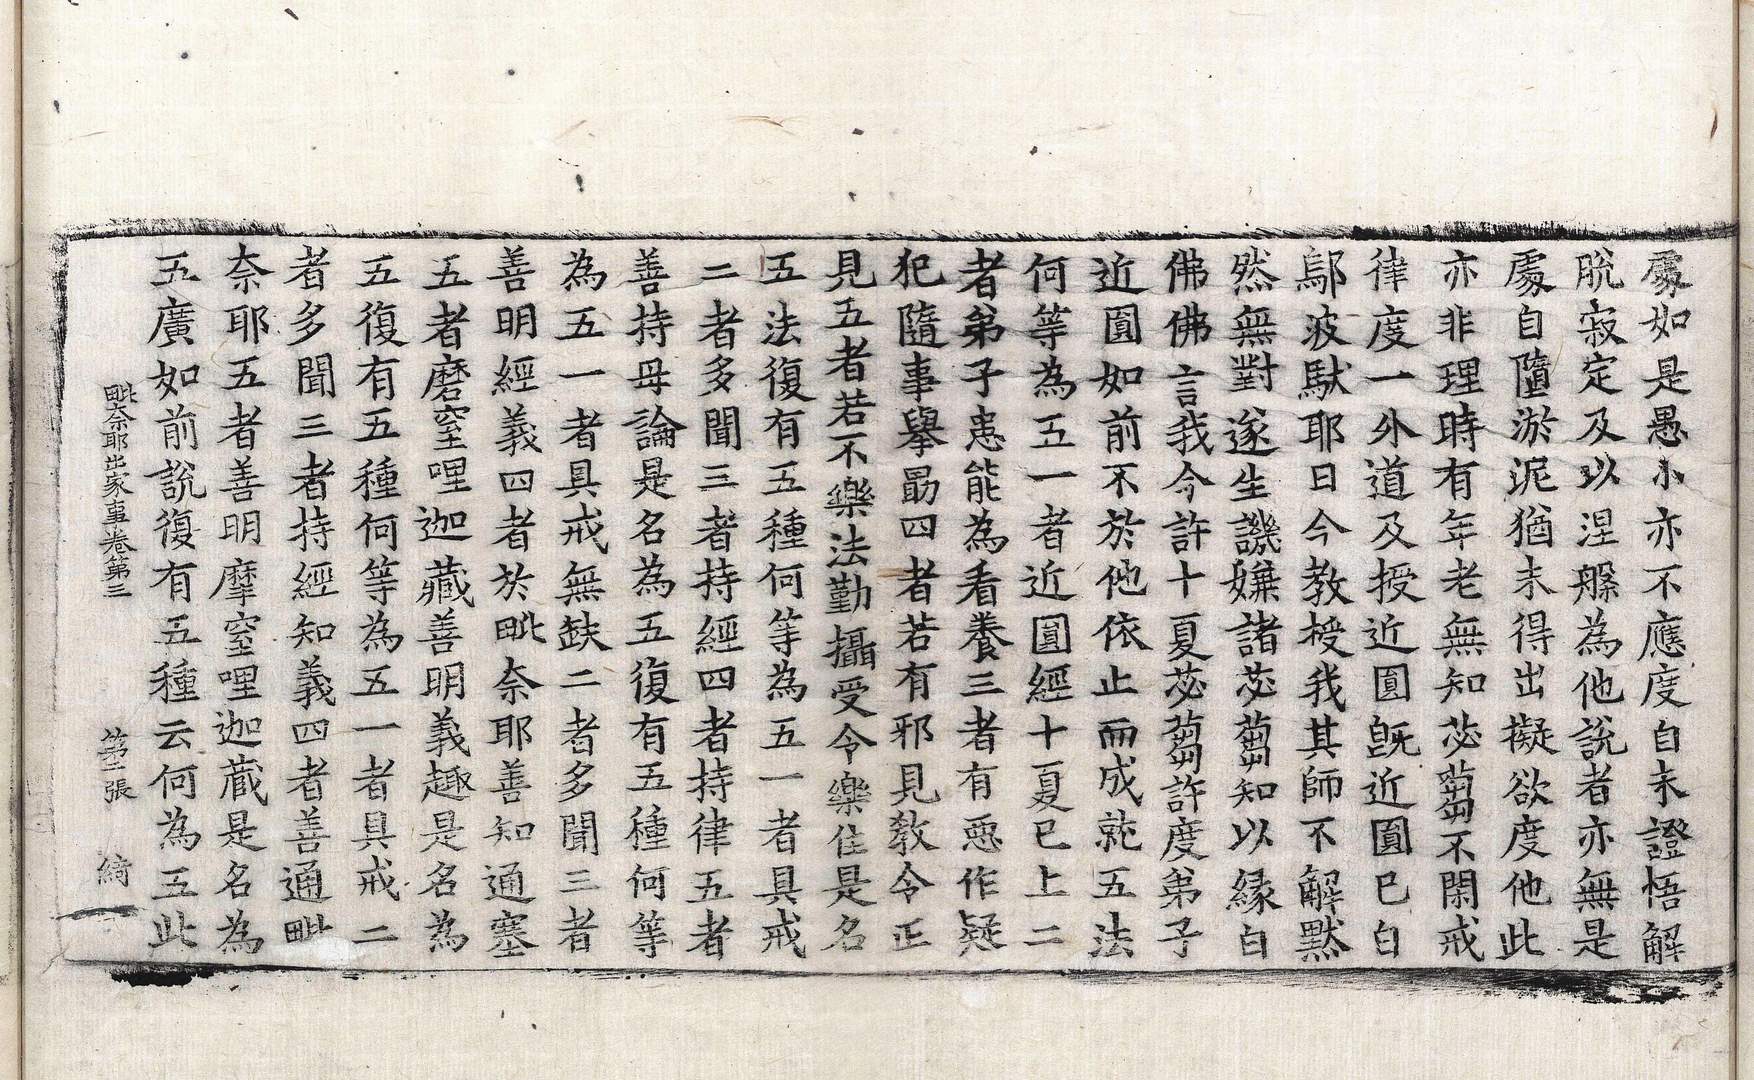 處如是愚小亦不應度自未證悟解
脫寂定及以涅槃為他說者亦無是
處自墮淤泥猶未得出擬欲度他此
亦非理時有年老無知苾蒭不閑戒
律度一外道及授近圓旣近圓已白
鄔波馱耶曰今教授我其師不解黙
然無對遂生譏嫌諸苾蒭知以緣白
佛佛言我今許十夏苾蒭許度弟子
近圓如前不於他依止而成就五法
何等為五一者近圓經十夏已上二
者弟子患能為看養三者有惡作疑
犯隨事舉勗四者若有邪見教令正
見五者若不樂法勤攝受令樂住是名
五法復有五種何等為五一者具戒
二者多聞三者持經四者持律五者
善持母論是名為五復有五種何等
為五一者具戒無缺二者多聞三者
善明經義四者於毗奈耶善知通塞
五者磨窒哩迦藏善明義趣是名為
五復有五種何等為五一者具戒二
者多聞三者持經知義四者善通毗
奈耶五者善明摩窒哩迦藏是名為
五廣如前說復有五種云何為五此
毗奈耶出家事卷第三 第二張 綺